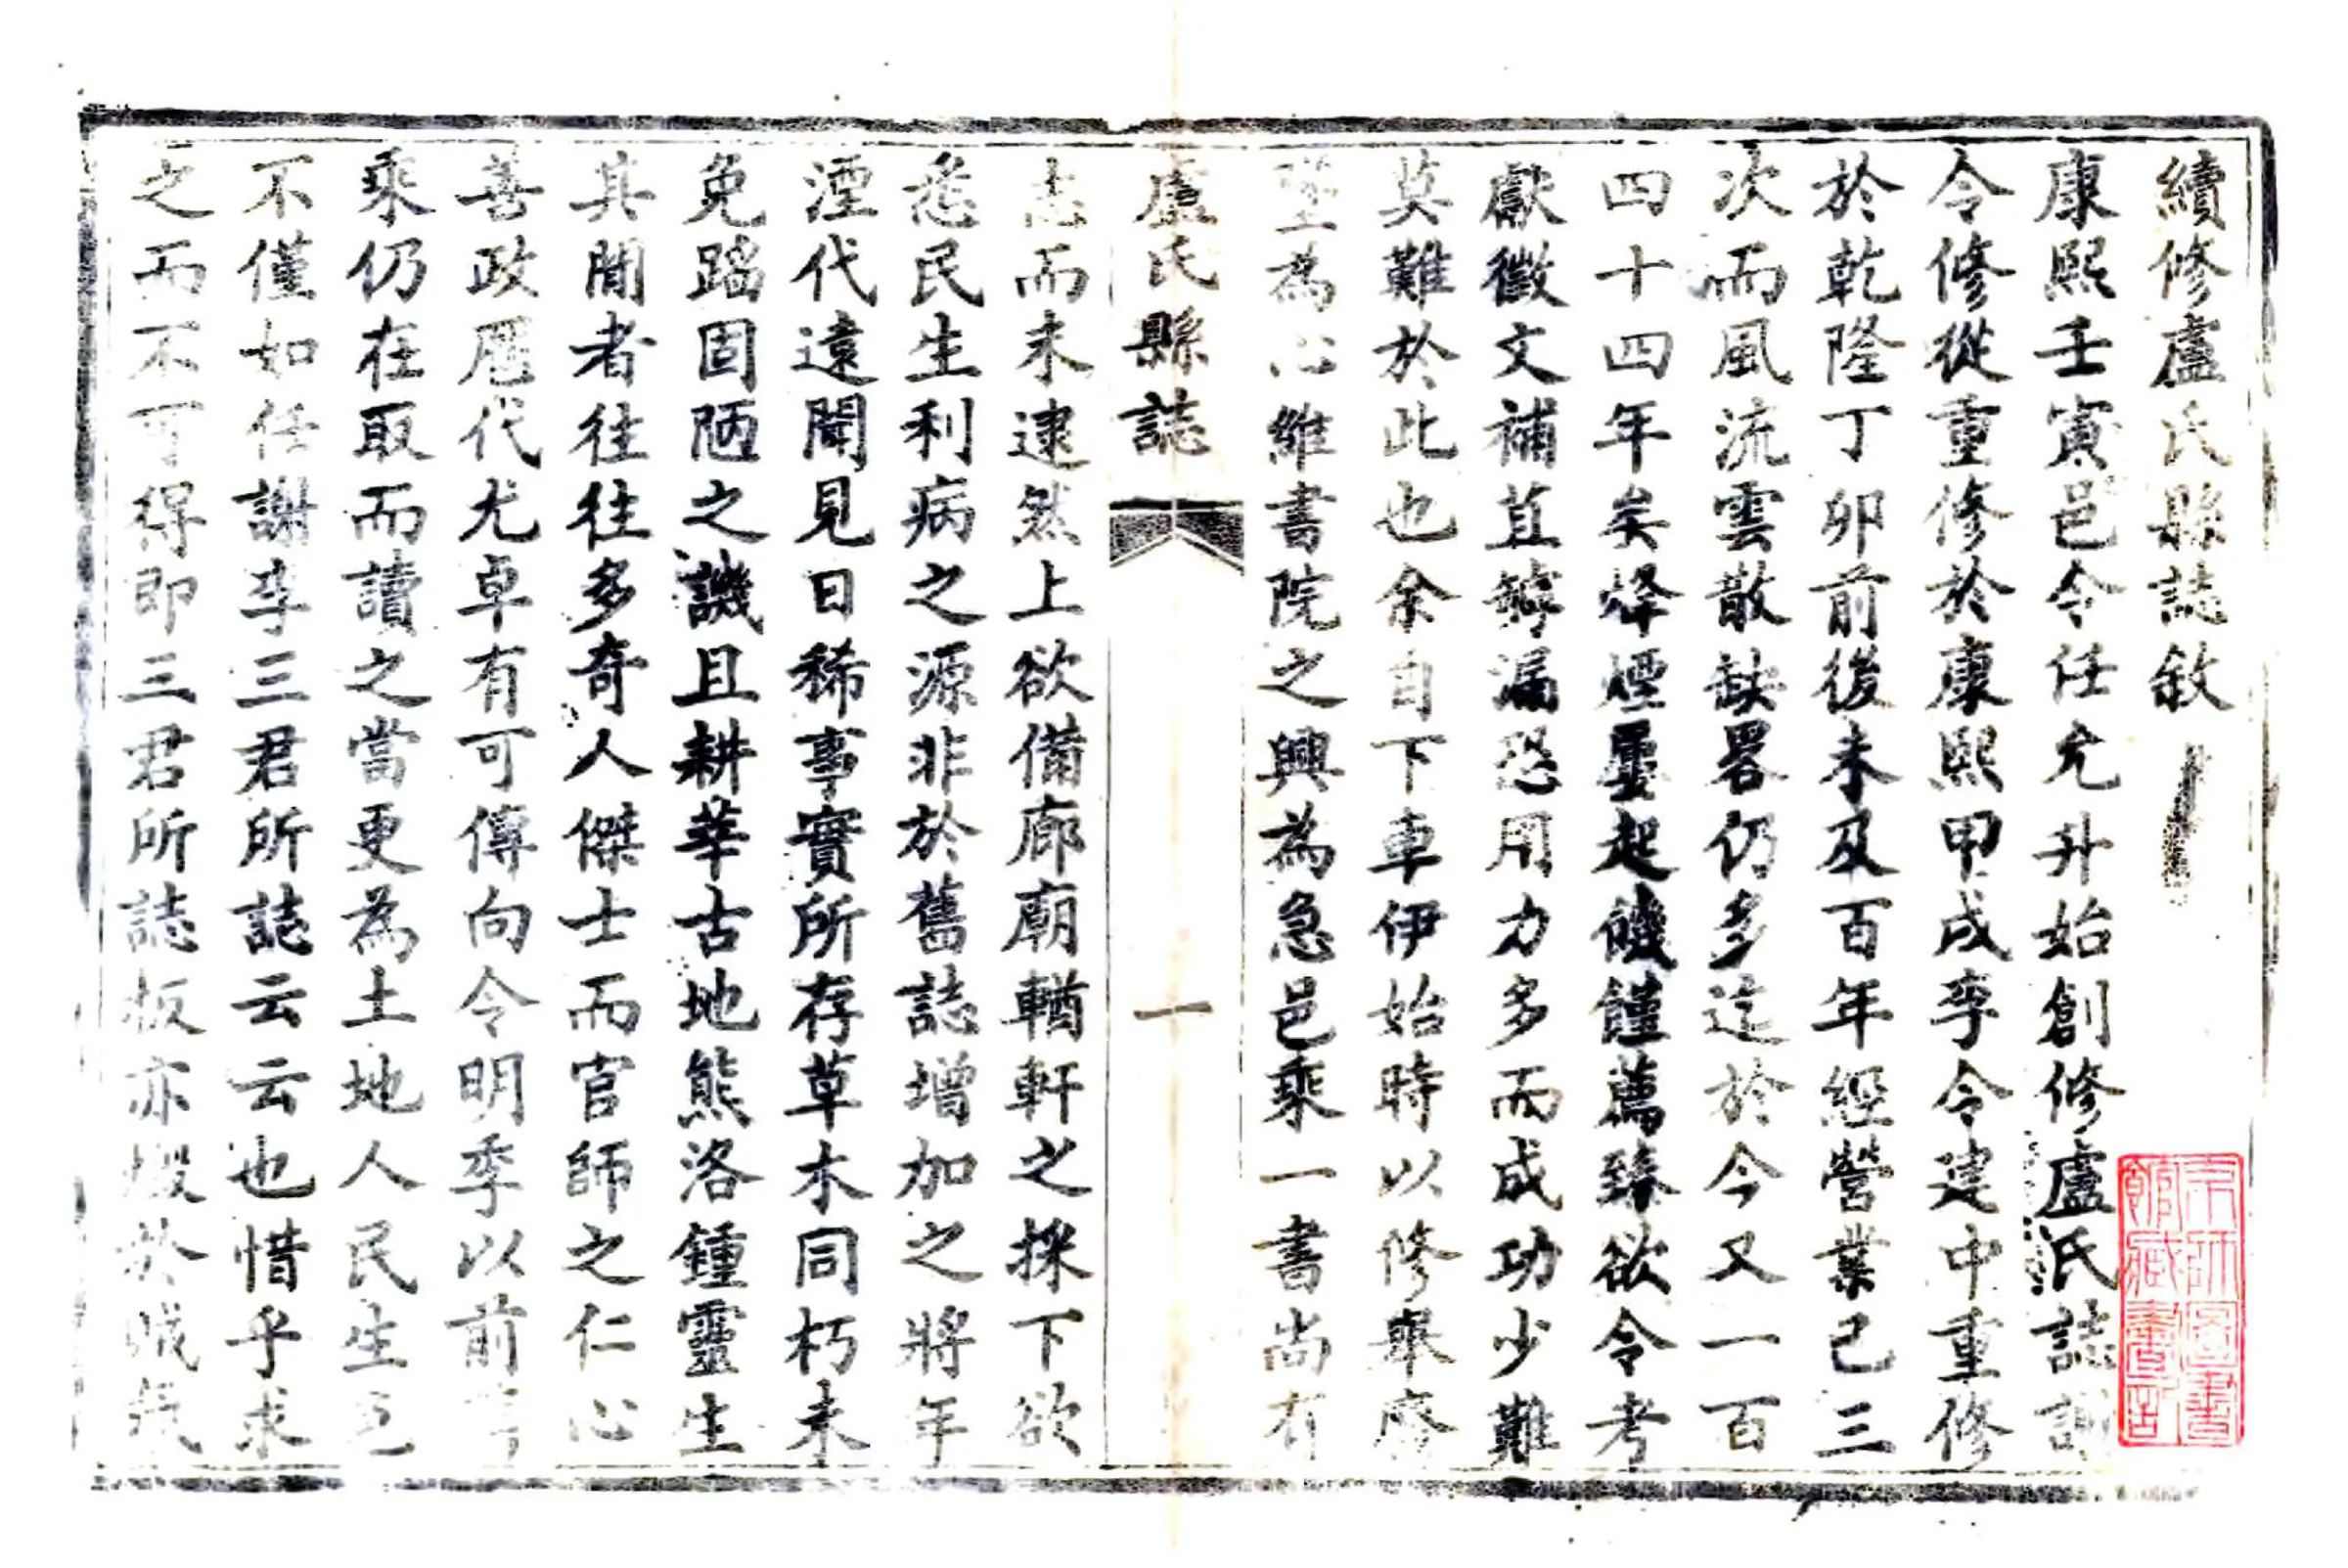 續修盧氏縣誌敘
康熙壬寅邑令任允升始創修盧氏誌謝
令修從重修於康熙甲戌李令建中重修
於乾隆丁卯前後未及百年經營業已三
次而風流雲散缺畧仍多迄於今又一百
四十四年矣烽煙屢起饑饉薦臻欲令考
獻徵文補苴罅漏恐用力多而成功少難
莫難於此也余自下車伊始時以修舉廢
墜為心維書院之興為急邑乘一書尚有
盧氏縣誌
一
志而未逮然上欲備廊廟輶軒之採下欲
悉民生利病之源非於舊誌增加之將年
湮代遠聞見日稀事實所存草木同朽未
免蹈固陋之譏且耕莘古地熊洛鍾靈生
其間者往往多奇人傑士而官師之仁心
善政歷代尤卓有可傳向令明季以前
乘仍在取而讀之當更為土地人民生色
不僅如任謝李三君所誌云云也惜乎求
之而不可得即三君所誌板亦燬於賊氛